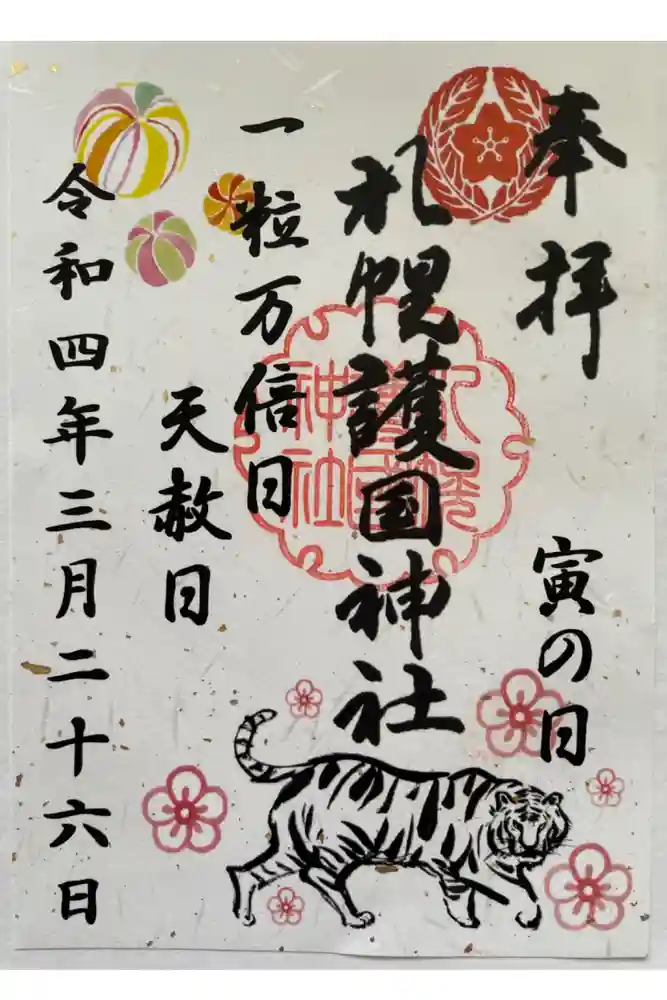 奉拝
寅の日
札幌護国神社
札幌護国神社
一粒万倍日
天赦日
令和四年三月二十六日